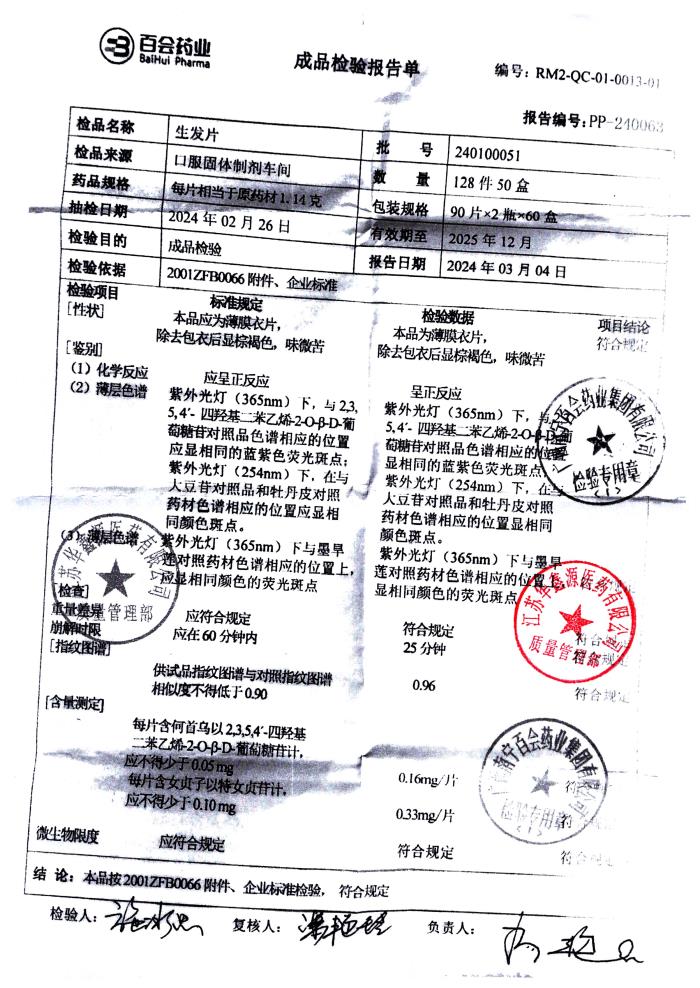 百会药业
BaiHui Pharma
成品检验报告单
编号：RM2-QC-01-0013-01
报告编号：PP-240063
检品名称 生发片 批号 240100051
检品来源 口服固体制剂车间 数量 128 件 50 盒
药品规格 每片相当于原药材 1.14 克 包装规格 90 片×2 瓶×60 盒
抽检日期 2024 年 02 月 26 日 有效期至 2025 年 12 月
检验目的 成品检验 报告日期 2024 年 03 月 04 日
检验依据 2001ZFB0066 附件、企业标准
检验项目 标准规定 检验数据 项目结论
[性状] 本品应为薄膜衣片， 本品为薄膜衣片， 符合规定
除去包衣后显棕褐色，味微苦 除去包衣后显棕褐色，味微苦
[鉴别]
（1）化学反应 应呈正反应 呈正反应
（2）薄层色谱 紫外光灯（365nm）下，与 2,3, 紫外光灯（365nm）下，与
5,4′- 四羟基二苯乙烯-2-O-β-D-葡 5,4′- 四羟基二苯乙烯-2-O-β-D-葡
萄糖苷对照品色谱相应的位置 萄糖苷对照品色谱相应的位置
应显相同的蓝紫色荧光斑点； 显相同的蓝紫色荧光斑点；
紫外光灯（254nm）下，在与 紫外光灯（254nm）下，在与
大豆苷对照品和牡丹皮对照 大豆苷对照品和牡丹皮对照
药材色谱相应的位置应显相 药材色谱相应的位置显相同
同颜色斑点。 颜色斑点。
（3）薄层色谱 紫外光灯（365nm）下与墨旱 紫外光灯（365nm）下与墨旱
莲对照药材色谱相应的位置上， 莲对照药材色谱相应的位置上
应显相同颜色的荧光斑点 显相同颜色的荧光斑点
[检查]
重量差异 应符合规定 符合规定 符合规定
崩解时限 应在 60 分钟内 25 分钟 符合规定
[指纹图谱]
供试品指纹图谱与对照指纹图谱 0.96 符合规定
相似度不得低于 0.90
[含量测定]
每片含何首乌以 2,3,5,4′-四羟基
二苯乙烯-2-O-β-D-葡萄糖苷计，
应不得少于 0.05 mg 0.16mg/片 符
每片含女贞子以特女贞苷计，
应不得少于 0.10 mg 0.33mg/片 符
微生物限度 应符合规定 符合规定 符合规定
结论：本品按 2001ZFB0066 附件、企业标准检验， 符合规定
检验人： 复核人： 负责人：
广西南宁百会药业集团有限公司
检验专用章
（1）
江苏华鑫源医药有限公司
质量管理部
江苏华鑫源医药有限公司
质量管理部
广西南宁百会药业集团有限公司
检验专用章
（1）